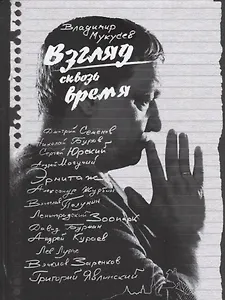 Владимир
Мукусев
Взгляд
сквозь
время
Дмитрий Семёнов
Николай Буров
Сергей Юрский
Андрей Могучий
Эрмитаж
Александр Журбин
Полунин
Ленинградский Зоопарк
Давид
Андрей Кураев
Лев Лурье
Вячеслав Заренков
Григорий Явлинский